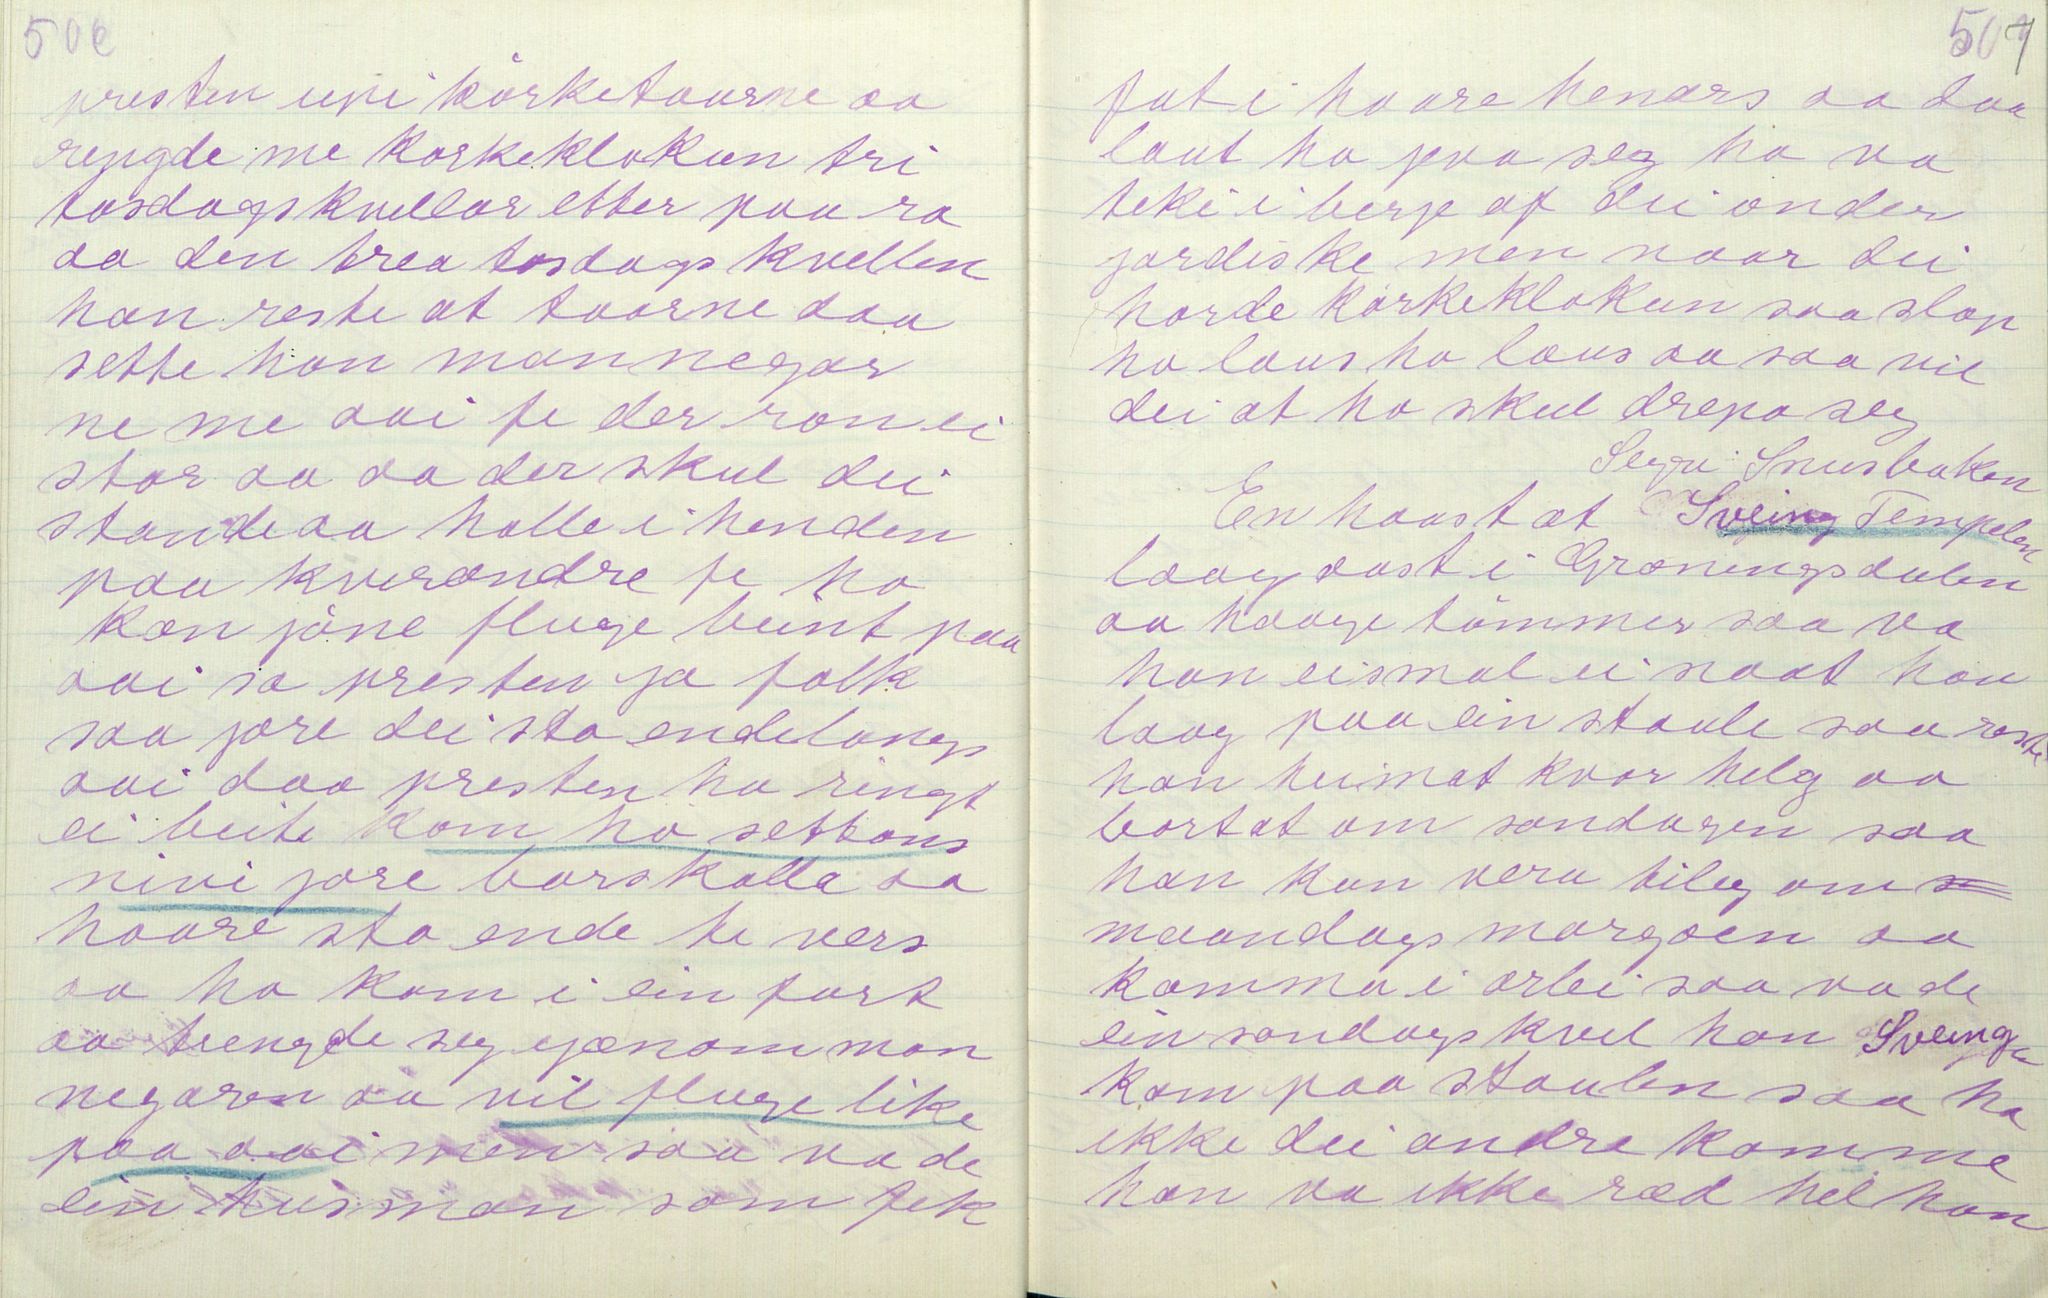 506
presten upi kórketaarne aa
ryngde me korkeklokun tri
tosdagskvellar etter paa ra
aa den trea tosdags kvellen
han reste at taarne daa
sette han mannegar
ne me aai fe der ron ei
stor aa aa der skul dei
stande aa halle i henden
paa kverandre fe ho
kan jóne fluge beint paa
aai sa presten ja folk
saa jore dei sta endelangs
aai daa presten ha ringt
ei beite kom ho settans
nivi jore barskalla aa
haare sto ende te vers
aa ho kom i ein fart
aa trengde seg gjænom man
negaren aa vil fluge like
paa aai men saa va de
ein husman som fek
507
fat i haare henars aa daa
laut ho jeva seg ho va
teki i berje af dei onder
jordiske men naar dei
horde kórkeklokun saa slap
ho laus ho laus aa saa vil
dei at ho skul drepa seg
Segri Snusbaken
En haast at Sveing Tempelen
laag aast i Grøningsdalen
aa haage tómmer saa va
han eismal ei naat han
laag paa ein staule saa reste
han heimat kvar helg aa
bortat om sondagen saa
han kun vera tileg om
maandags morgoen aa
komma i arbei saa va de
ein sondags kvel han Sveinga
kom paa staulen saa ha
ikke dei andre komme
han va ikke ræd hel han